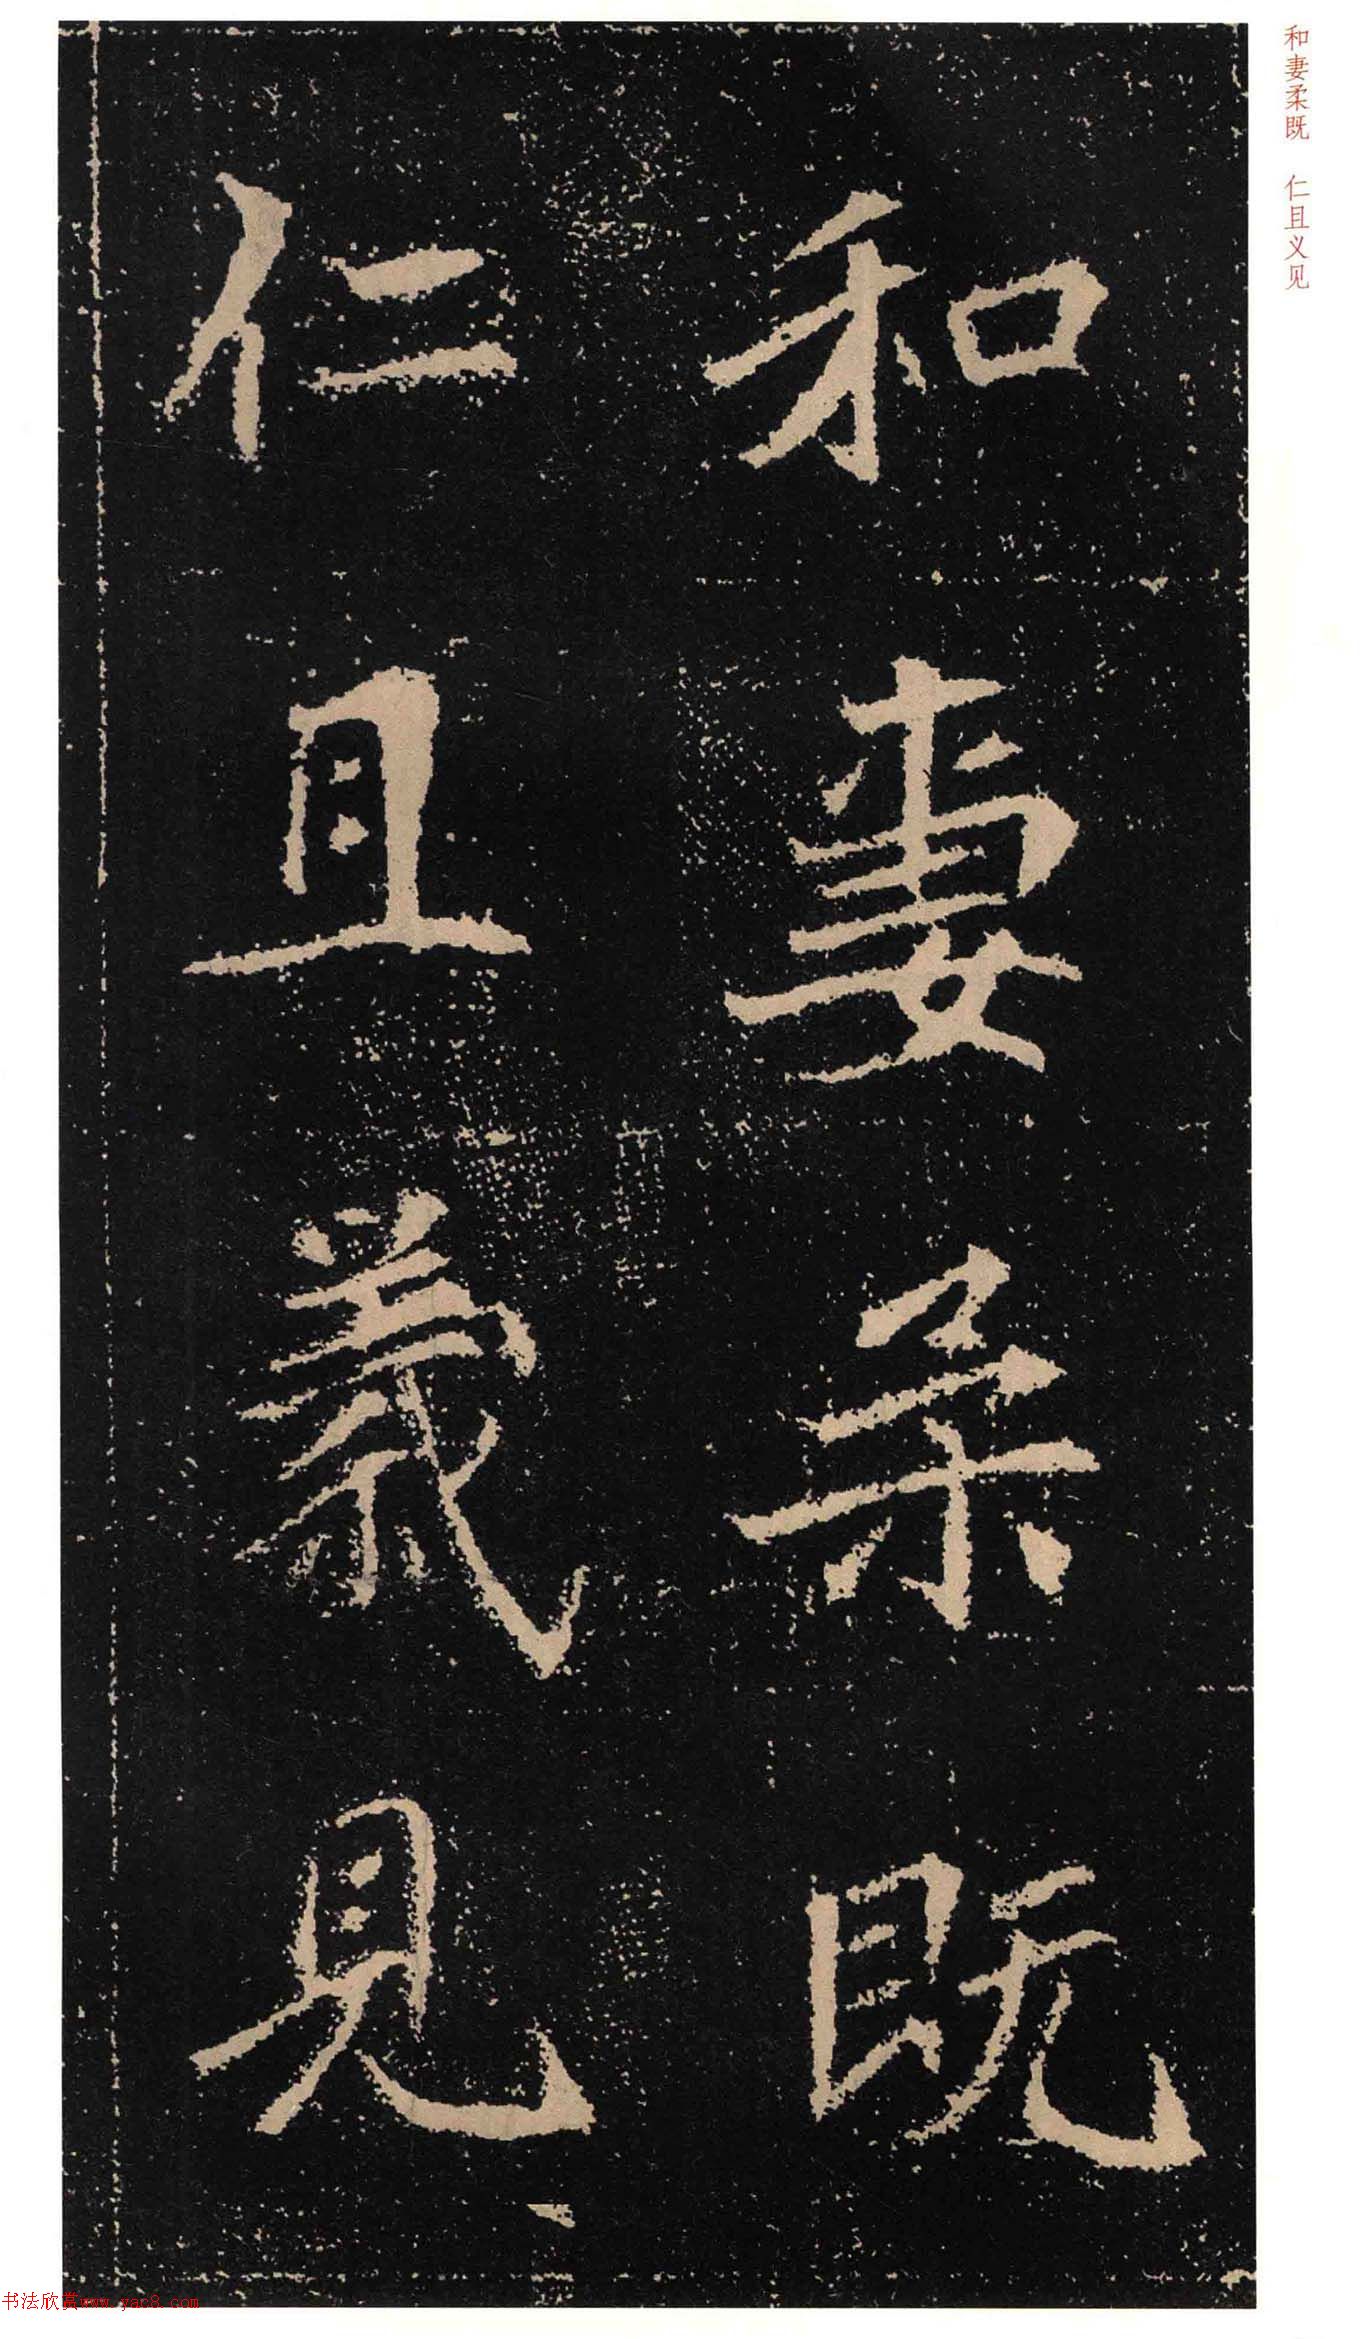 和妻柔既 仁且义见
和妻柔既
仁且義見
书法欣赏www.yac8.com